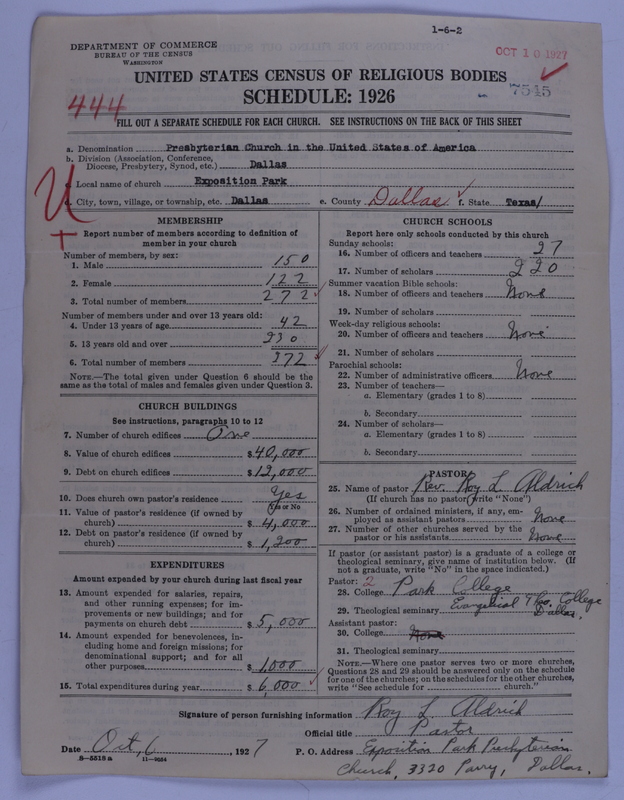 1-6-2
DEPARTMENT OF COMMERCE
BUREAU OF THE CENSUS
WASHINGTON
OCT 10 1927
UNITED STATES CENSUS OF RELIGIOUS BODIES
SCHEDULE: 1926
7545
444
FILL OUT A SEPARATE SCHEDULE FOR EACH CHURCH. SEE INSTRUCTIONS ON THE BACK OF THIS SHEET
a. Denomination Presbyterian Church in the United States of America
b. Division (Association, Conference,
Diocese, Presbytery, Synod, etc.) Dallas
c. Local name of church Exposition Park
d. City, town, village, or township, etc. Dallas e. County Dallas f. State Texas/
U
MEMBERSHIP
Report number of members according to definition of
member in your church
Number of members, by sex:
1. Male 150
2. Female 122
3. Total number of members 272
Number of members under and over 13 years old:
4. Under 13 years of age 42
5. 13 years old and over 230
6. Total number of members 272
NOTE.—The total given under Question 6 should be the
same as the total of males and females given under Question 3.
CHURCH BUILDINGS
See instructions, paragraphs 10 to 12
7. Number of church edifices One
8. Value of church edifices $40,000
9. Debt on church edifices $12,000
10. Does church own pastor's residence Yes
Yes or No
11. Value of pastor's residence (if owned by
church) $4,000
12. Debt on pastor's residence (if owned by
church) $1,200
EXPENDITURES
Amount expended by your church during last fiscal year
13. Amount expended for salaries, repairs,
and other running expenses; for im-
provements or new buildings; and for
payments on church debt $5,000
14. Amount expended for benevolences, in-
cluding home and foreign missions; for
denominational support; and for all
other purposes $1000
15. Total expenditures during year $6,000
CHURCH SCHOOLS
Report here only schools conducted by this church
Sunday schools:
16. Number of officers and teachers 27
17. Number of scholars 220
Summer vacation Bible schools:
18. Number of officers and teachers None
19. Number of scholars
Week-day religious schools:
20. Number of officers and teachers None
21. Number of scholars
Parochial schools:
22. Number of administrative officers None
23. Number of teachers—
a. Elementary (grades 1 to 8)
b. Secondary
24. Number of scholars—
a. Elementary (grades 1 to 8)
b. Secondary
PASTOR
25. Name of pastor Rev. Roy L. Aldrich
(If church has no pastor, write "None")
26. Number of ordained ministers, if any, em-
ployed as assistant pastors None
27. Number of other churches served by the
pastor or his assistants None
If pastor (or assistant pastor) is a graduate of a college or
theological seminary, give name of institution below. (If
not a graduate, write "No" in the space indicated.)
Pastor: 2
28. College Park College
29. Theological seminary Evangelical Theo. College
Dallas.
Assistant pastor:
30. College None
31. Theological seminary
NOTE.—Where one pastor serves two or more churches,
Questions 28 and 29 should be answered only on the schedule
for one of the churches; on the schedules for the other churches,
write "See schedule for church."
Signature of person furnishing information Roy L. Aldrich
Official title Pastor
Date Oct, 6, 1927 P. O. Address Exposition Park Presbyterian
Church, 3320 Parry, Dallas.
8-5518a 11-9034